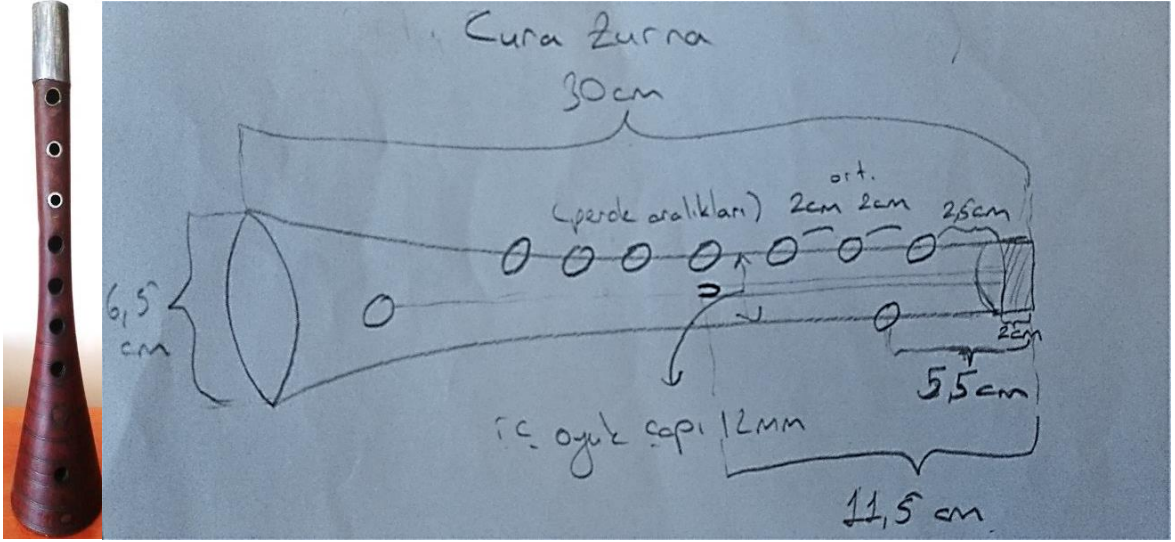 Cura Zurna
30cm
ort.
(perde aralıkları) 2cm 2cm 2,5cm
6,5 cm
2cm
5,5cm
iç oyuk çapı 12mm
11,5 cm